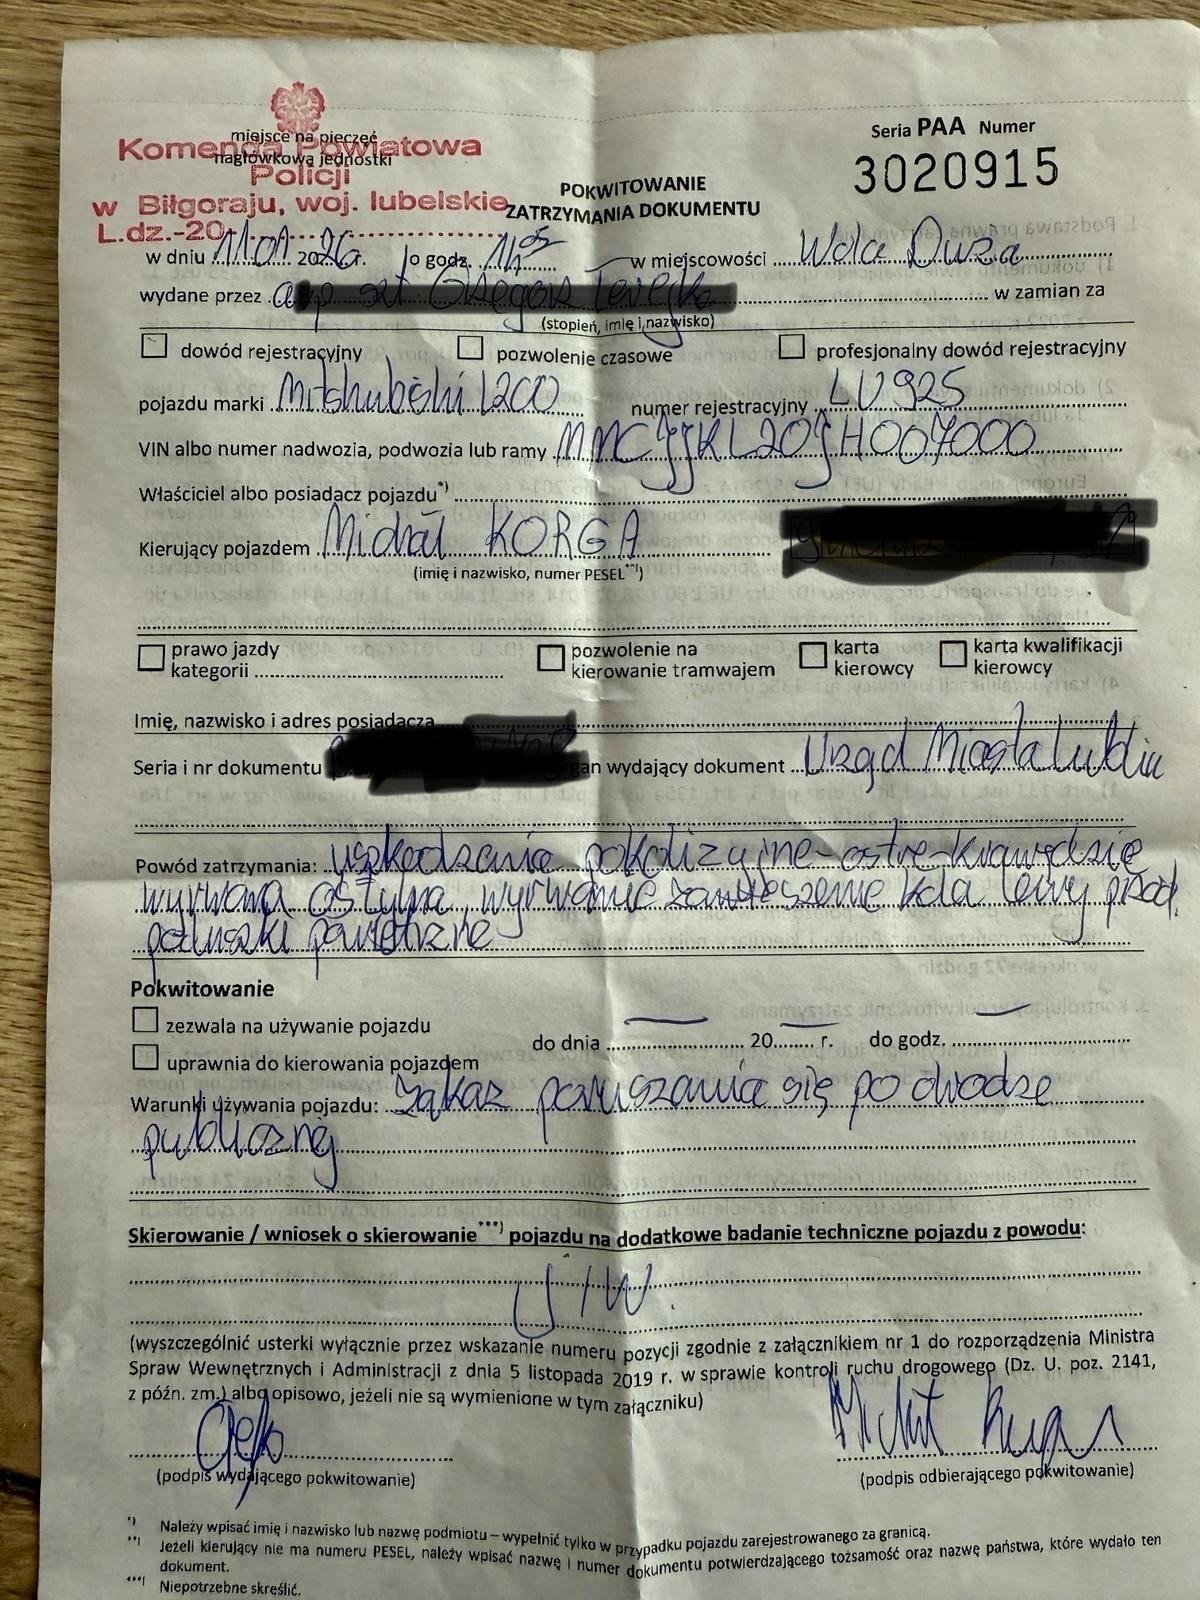 miejsce na pieczęć
nagłówkową jednostki
Komenda Powiatowa
Policji
w Biłgoraju, woj. lubelskie
L.dz.-20
Seria PAA Numer
3020915
POKWITOWANIE
ZATRZYMANIA DOKUMENTU
w dniu 11.01 2026 r. o godz. 11 05 w miejscowości Wola Duża
wydane przez w zamian za
(stopień, imię i nazwisko)
dowód rejestracyjny pozwolenie czasowe profesjonalny dowód rejestracyjny
pojazdu marki Mitshubishi L200 numer rejestracyjny LU 925
VIN albo numer nadwozia, podwozia lub ramy MMCJJKL20JH007000
Właściciel albo posiadacz pojazdu*)
Kierujący pojazdem Michał KORGA
(imię i nazwisko, numer PESEL**))
prawo jazdy kategorii pozwolenie na kierowanie tramwajem karta kierowcy karta kwalifikacji kierowcy
Imię, nazwisko i adres posiadacza
Seria i nr dokumentu organ wydający dokument Urząd Miasta Lublin
Powód zatrzymania: uszkodzenia pokolizyjne-ostre-krawędzie
wyrwana oś tylna, wyrwanie zawieszenie koła lewy przód.
poduszki powietrzne
Pokwitowanie
zezwala na używanie pojazdu
uprawnia do kierowania pojazdem
do dnia — 20 — r. do godz. —
Warunki używania pojazdu: zakaz poruszania się po drodze
publicznej
Skierowanie / wniosek o skierowanie***) pojazdu na dodatkowe badanie techniczne pojazdu z powodu:
j/w
(wyszczególnić usterki wyłącznie przez wskazanie numeru pozycji zgodnie z załącznikiem nr 1 do rozporządzenia Ministra
Spraw Wewnętrznych i Administracji z dnia 5 listopada 2019 r. w sprawie kontroli ruchu drogowego (Dz. U. poz. 2141,
z późn. zm.) albo opisowo, jeżeli nie są wymienione w tym załączniku)
(podpis wydającego pokwitowanie) (podpis odbierającego pokwitowanie)
*) Należy wpisać imię i nazwisko lub nazwę podmiotu – wypełnić tylko w przypadku pojazdu zarejestrowanego za granicą.
**) Jeżeli kierujący nie ma numeru PESEL, należy wpisać nazwę i numer dokumentu potwierdzającego tożsamość oraz nazwę państwa, które wydało ten
dokument.
***) Niepotrzebne skreślić.